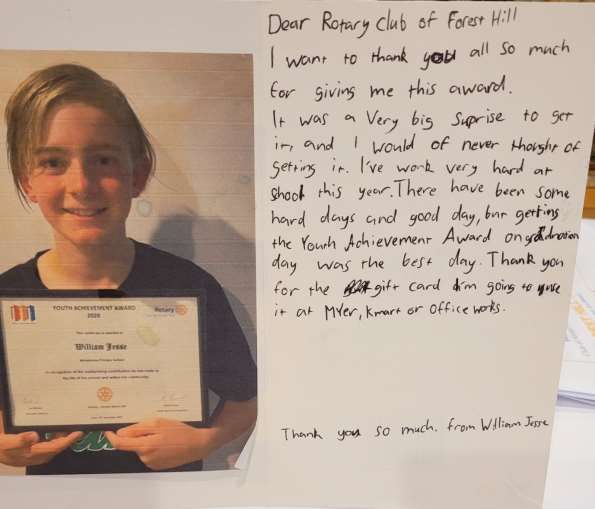 Dear Rotary Club of Forest Hill
I want to thank you all so much
for giving me this award.
It was a very big suprise to get
it, and I would of never thought of
getting it. I've work very hard at
shool this year. There have been some
hard days and good day, but getting
the Youth Achievement Award on graduation
day was the best day. Thank you
for the gift card I'm going to use
it at Myer, kmart or office works.
Thank you so much. from William Jesse
YOUTH ACHIEVEMENT AWARD
2020
Rotary
This certificate is awarded to
William Jesse
Primary School
in recognition of the outstanding contribution he has made to
the life of his school and wider community